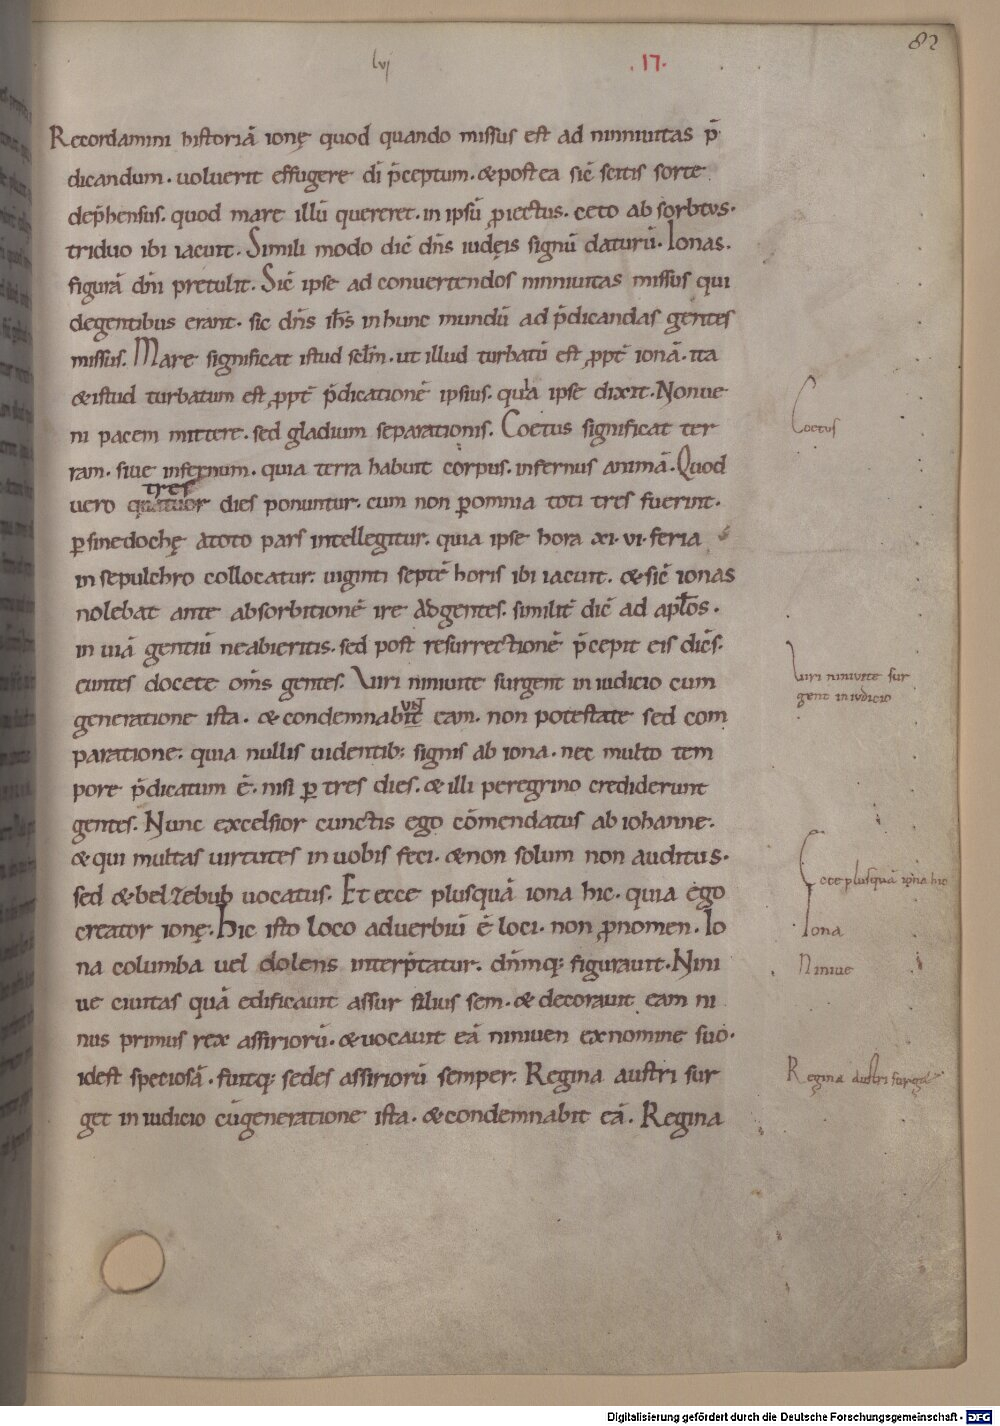 82
lvi
.17.
Recordamini historiā ionę quod quando missus est ad ninniuitas p̄
dicandum. uoluerit effugere dī p̄ceptum. & postea sic̄ scitis sorte
dep̄hensus. quod mare illū quereret. in ipsū ꝓiectus. ceto absorbtus.
triduo ibi iacuit. Simili modo dic̄ dn̄s iudęis signū daturū. Ionas.
figurā dn̄i pretulit. Sic̄ ipse ad conuertendos ninniuitas missus qui
degentibus erant. sic dn̄s ih̄s in hunc mundū ad p̄dicandas gentes
missus. Mare significat istud sclm̄. ut illud turbatū est ꝓpt̄ ionā. ita
& istud turbatum est ꝓpt̄ p̄dicationē ipsius. quia ipse dixit. Non ue
ni pacem mittere. sed gladium separationis. Coetus significat ter
ram. siue infernum. quia terra habuit corpus. infernus animā. Quod
tres
uero quattuor dies ponuntur. cum non ꝑ omnia toti tres fuerint.
ꝑ sinedochę a toto pars intellegitur. quia ipse hora xi. vi. feria
in sepulchro collocatur. uiginti septē horis ibi iacuit. & sic̄ ionas
nolebat ante absorbitionē ire ad gentes. similit̄ dic̄ ad aptōs.
in uiā gentiū ne abieritis. sed post resurrectionē p̄cepit eis dic̄s.
euntes docete om̄s gentes. Viri niniuite surgent in iudicio cum
generatione ista. & condemnabit eam. non potestate sed com
paratione; quia nullis uidentib; signis ab iona. nec multo tem
pore p̄dicatum ē. nisi ꝑ tres dies. & illi peregrino crediderunt
gentes. Nunc excelsior cunctis ego cōmendatus ab iohanne.
& qui multas uirtutes in uobis feci. & non solum non auditus.
sed & belzebub uocatus. Et ecce plusquā iona hic. quia ego
creator ionę. Hic isto loco aduerbiū ē loci. non ꝓnomen. Io
na columba uel dolens interp̄tatur. dn̄mq; figurauit. Nini
ue ciuitas quā edificauit assur filius sem. & decorauit eam ni
nus primus rex assiriorū. & uocauit eā niniuen ex nomine suo.
idest speciosā. fuitq; sedes assiriorū semper. Regina austri sur
get in iudicio cū generatione ista. & condemnabit eā. Regina
Coetus
Viri niniuite sur
gent in iudicio
Ecce plusquā iona hic
Iona
Niniue
Regina austri surget
Digitalisierung gefördert durch die Deutsche Forschungsgemeinschaft - DFG